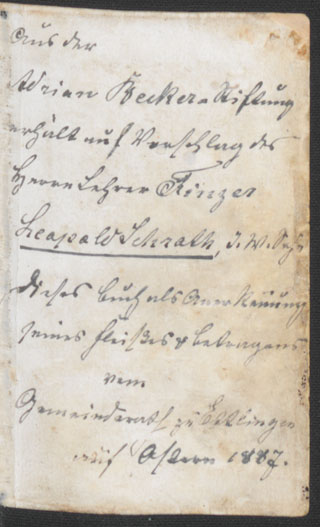 Aus der
Adrian Becker-Stiftung
erhält auf Vorschlag des
Herrn Lehrer Kinzer
Leopold Schrath, J. W. Sohn
dieses Buch als Anerkennung
seines Fleißes & Betragens
vom
Gemeinderath zu Ettlingen
auf Ostern 1887.